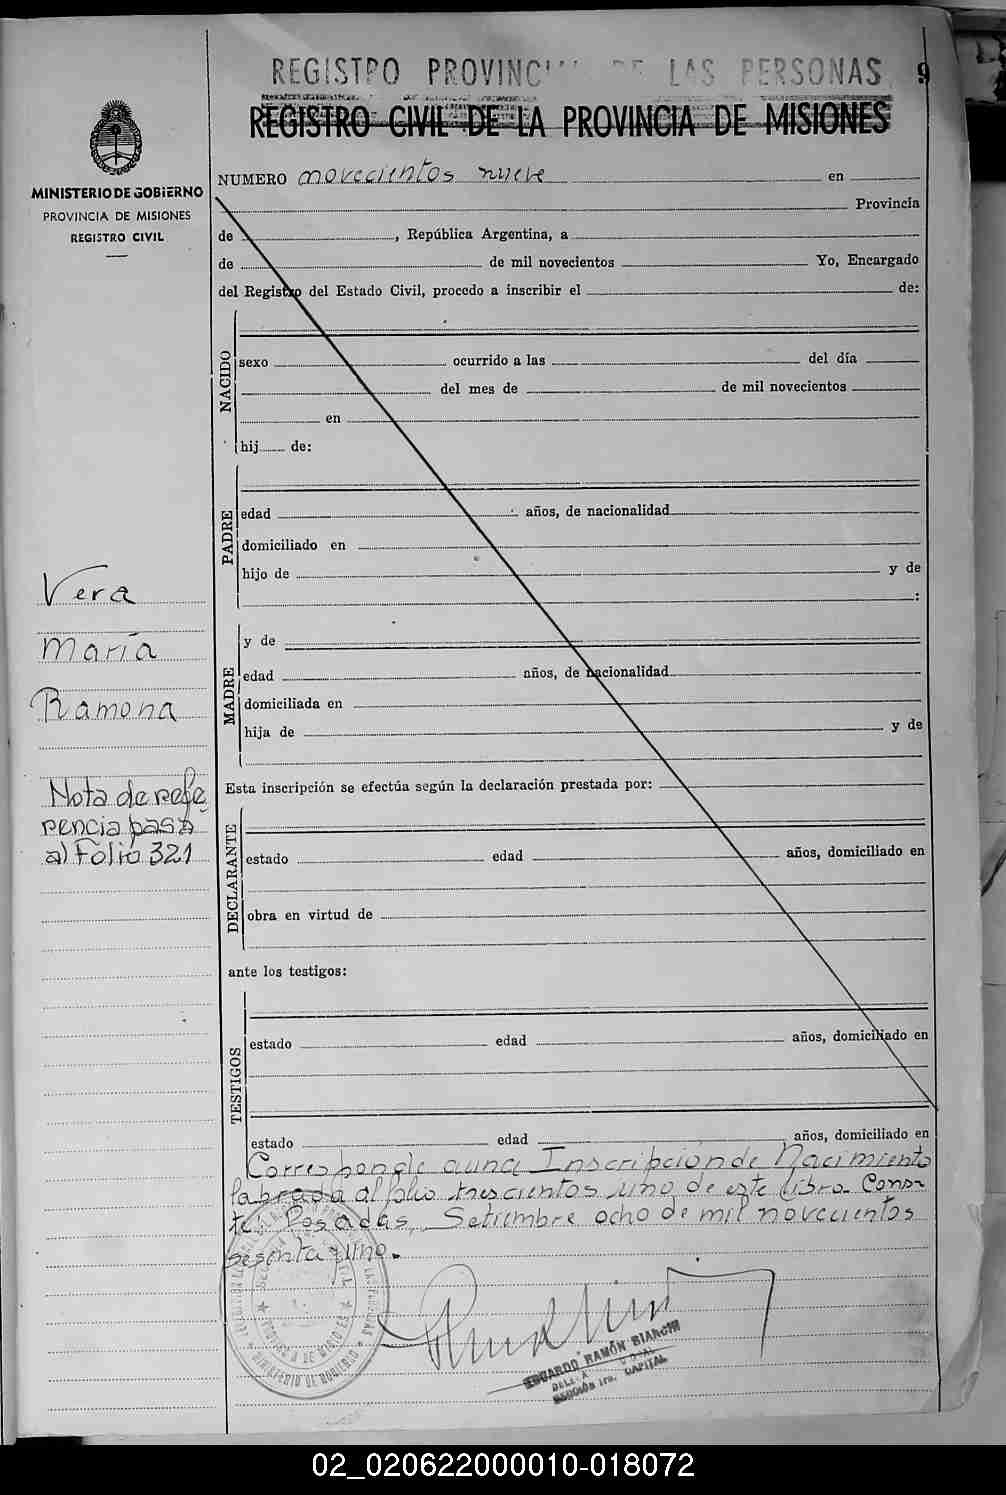 REGISTRO PROVINCIAL DE LAS PERSONAS
9
REGISTRO CIVIL DE LA PROVINCIA DE MISIONES
MINISTERIO DE GOBIERNO
PROVINCIA DE MISIONES
REGISTRO CIVIL
NUMERO novecientos nueve en
Provincia
de , República Argentina, a
de de mil novecientos Yo, Encargado
del Registro del Estado Civil, procedo a inscribir el de:
NACIDO
sexo ocurrido a las del día
del mes de de mil novecientos
en
hij de:
PADRE
edad años, de nacionalidad
domiciliado en
hijo de y de
:
MADRE
y de
edad años, de nacionalidad
domiciliada en
hija de y de
Vera
María
Ramona
Nota de refe
rencia pasa
al Folio 321
Esta inscripción se efectúa según la declaración prestada por:
DECLARANTE
estado edad años, domiciliado en
obra en virtud de
ante los testigos:
TESTIGOS
estado edad años, domiciliado en
estado edad años, domiciliado en
Corresponde a una Inscripcion de Nacimiento
labrada al folio trescientos uno de este libro. Cons-
te. Posadas, Setiembre ocho de mil novecientos
sesenta y uno.
EDUARDO RAMÓN BIANCHI
SECCIÓN 1ra. CAPITAL
02_020622000010-018072